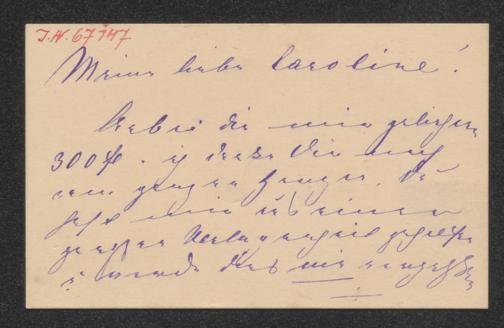 I.N. 67747
Meine liebe Caroline!
Anbei die mir geliehenen
300 f. ich danke Dir noch
von ganzem Herzen. Du
hast mir über einen
großen
u werde dies nie vergessen